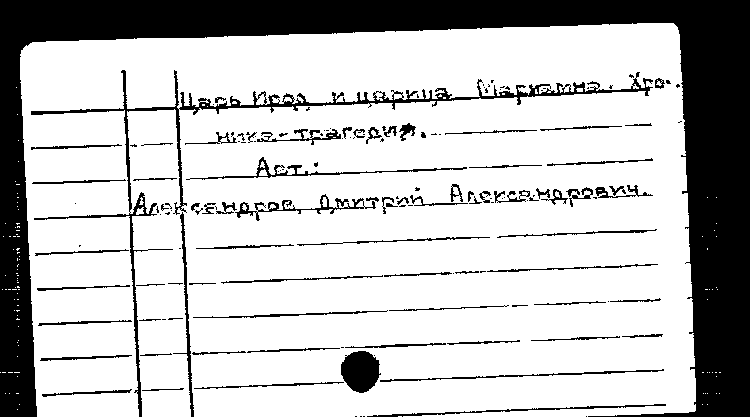 Царь Ирод и царица Мариамна. Хро-
ника-трагедия.
Авт.:
Александров, Дмитрий Александрович.